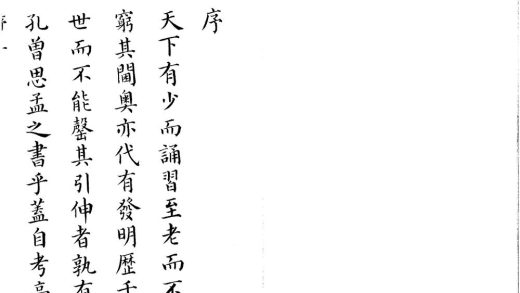 序
天下有少而誦習至老而不
窮其閫奧亦代有發明歷千
世而不能罄其引伸者孰有
孔曾思孟之書乎蓋自考亭